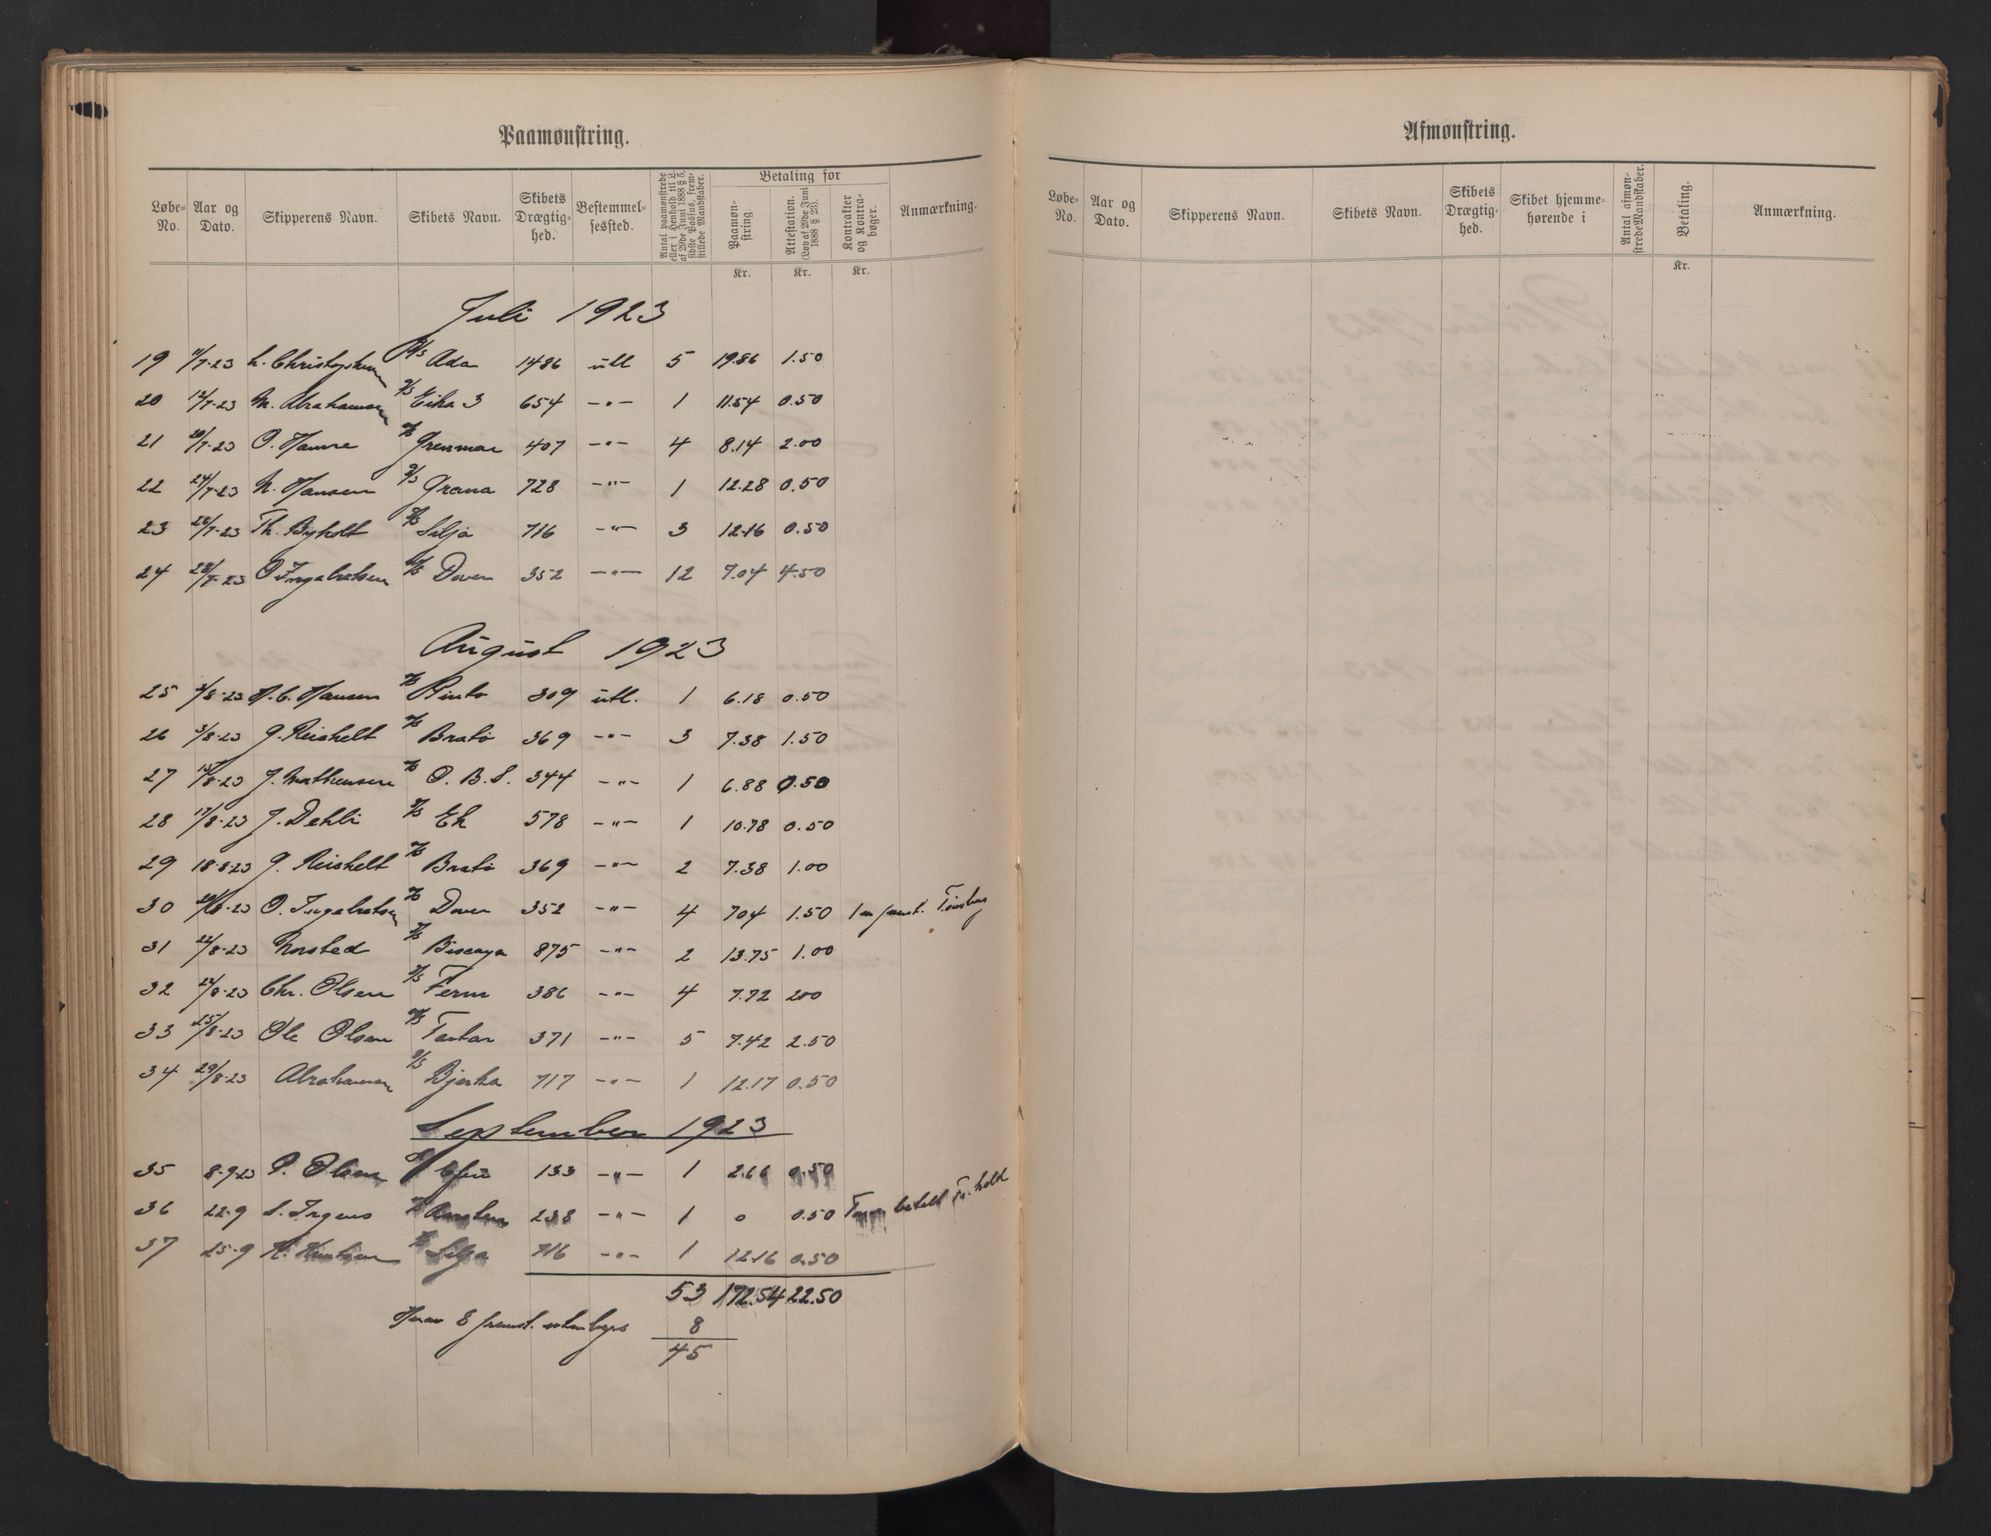 Paamønstring.
Løbe-No. Aar og Dato. Skipperens Navn. Skibets Navn. Skibets Drægtig-hed. Bestemmel-sessted. Antal paamønstrede eller i Henhold til L. af 29de Juni 1888 § 5, sidste Passus, frem-stillede Mandskaber. Betaling for Paamøn-string Attestation. (Lov af 29de Juni 1888 § 23). Kontrakter og Kontra-bøger. Anmærkning.
Kr. Kr. Kr.
Juli 1923
19 11/7-23 L. Christophersen D/S Ada 1486 utl 5 19.86 1.50
20 12/7-23 M. Abrahamsen D/S Eika 3 654 -"- 1 11.54 0.50
21 20/7-23 O. Hamre Grenmar 407 -"- 4 8.14 2.00
22 24/7-23 N. Hansen D/S Grana 728 -"- 1 12.28 0.50
23 26/7-23 Th. Byholt D/S Silja 716 -"- 3 12.16 0.50
24 28/7-23 O Ingebretsen D/S Doven 352 -"- 12 7.04 4.50
August 1923
25 2/8-23 H. C. Hansen Pinto 309 utl. 1 6.18 0.50
26 3/8-23 J. Reishelt Bratø 369 -"- 3 7.38 1.50
27 15/8-23 J. Mathiesen O. B. S. 344 -"- 1 6.88 0.50
28 17/8-23 J. Dehli D/S Ek 578 -"- 1 10.78 0.50
29 18-8-23 J. Reishelt Bratø 369 -"- 2 7.38 1.00
30 20/8-23 O. Ingebretsen Doven 352 -"- 4 704 1.50 1 m fremst. Tønsberg
31 22/8-23 Norsted Biscaya 875 -"- 2 13.75 1.00
32 23/8-23 Chr. Olsen D/S Ferm 386 -"- 4 7.72 200
33 25/8-23 Ole Olsen Tartar 371 -"- 5 7.42 2.50
34 29/8-23 Abrahamsen D/S Bjerka 717 -"- 1 12.17 0.50
September 1923
35 8-9-23 P. Olsen 133 -"- 1 2.66 0.50
36 22-9 S. 238 -"- 1 0 0.50 betalt
37 25-9 Silja 716 -"- 1 12.16 0.50
53 172.54 22.50
Herav 8 fremst. utenbys 8
45
Afmønstring.
Løbe-No. Aar og Dato. Skipperens Navn. Skibets Navn. Skibets Drægtig-hed. Skibet hjemme-hørende i Antal afmøn-strede Mandskaber. Betaling. Anmærkning.
Kr.